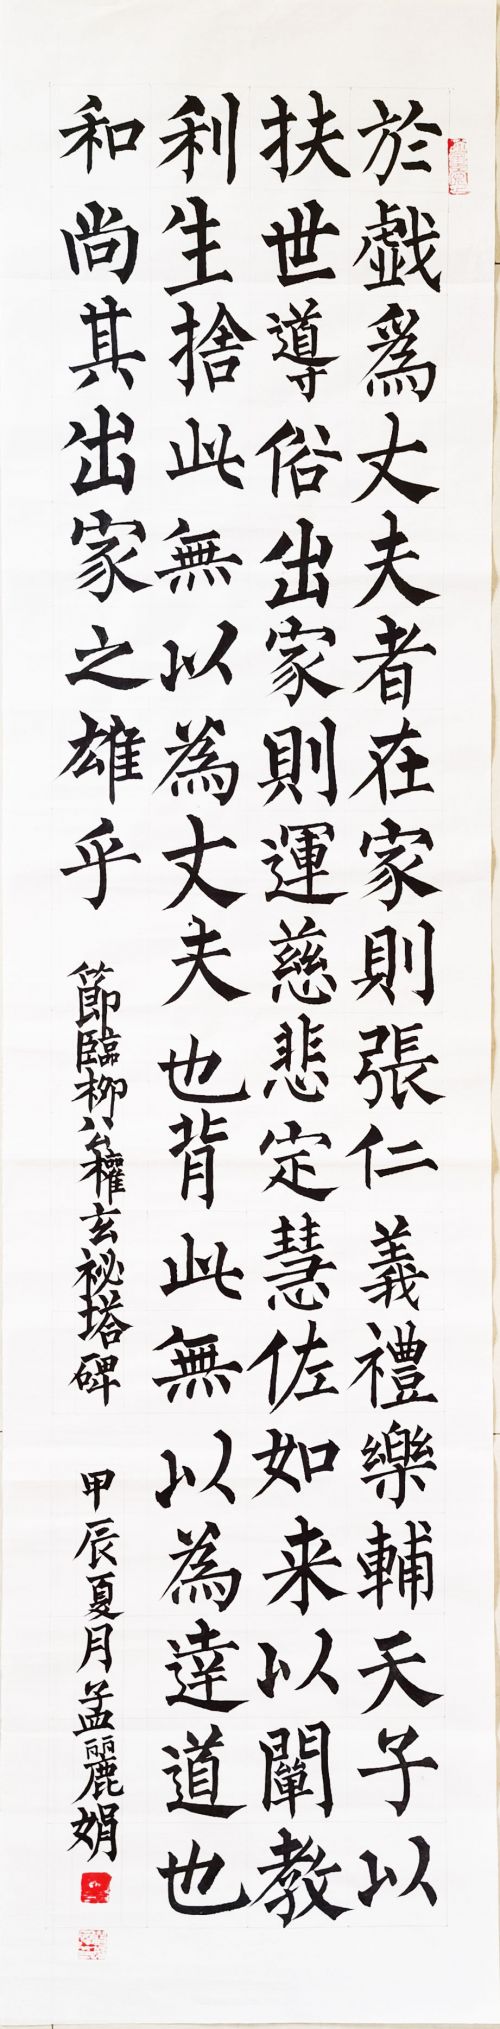 於戯爲丈夫者在家則張仁義禮樂輔天子以
扶世導俗出家則運慈悲定慧佐如来以闡教
利生捨此無以為丈夫也背此無以為達道也
和尚其出家之雄乎
節臨柳公權玄祕塔碑
甲辰夏月孟麗娟